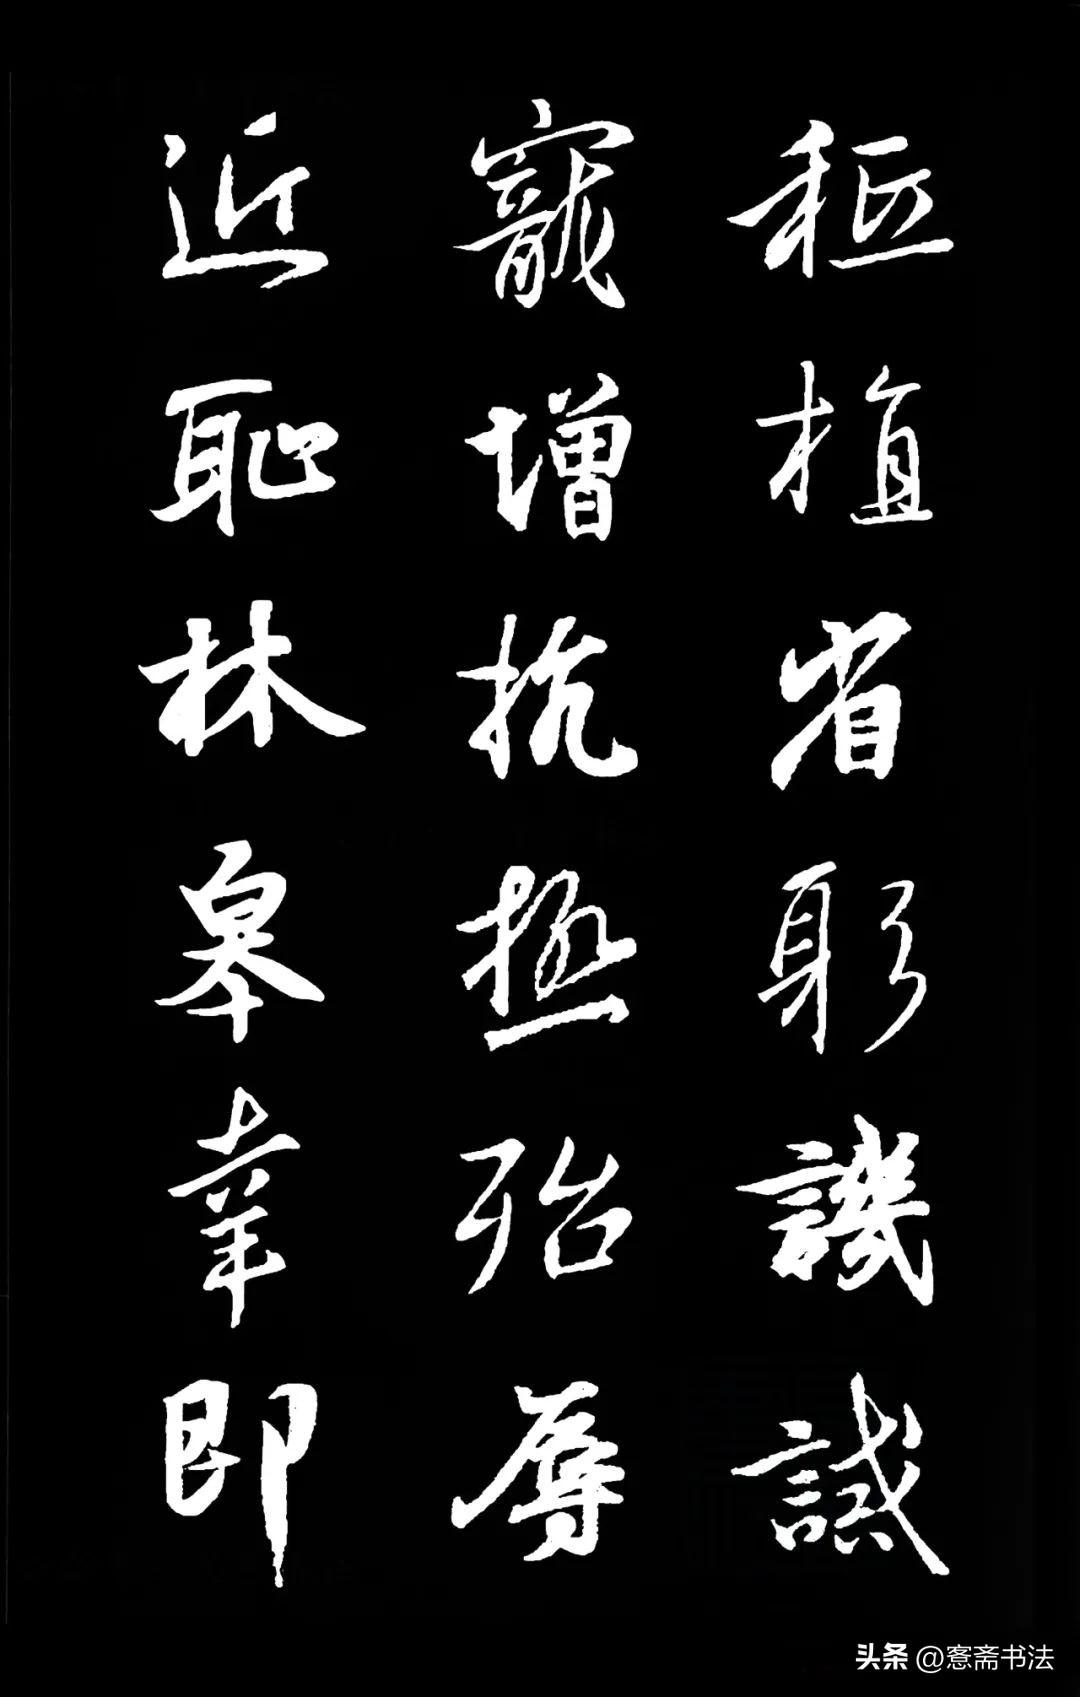 秪植省躬譏誡
寵增抗極殆辱
近恥林皋幸即
头条 @愙斋书法